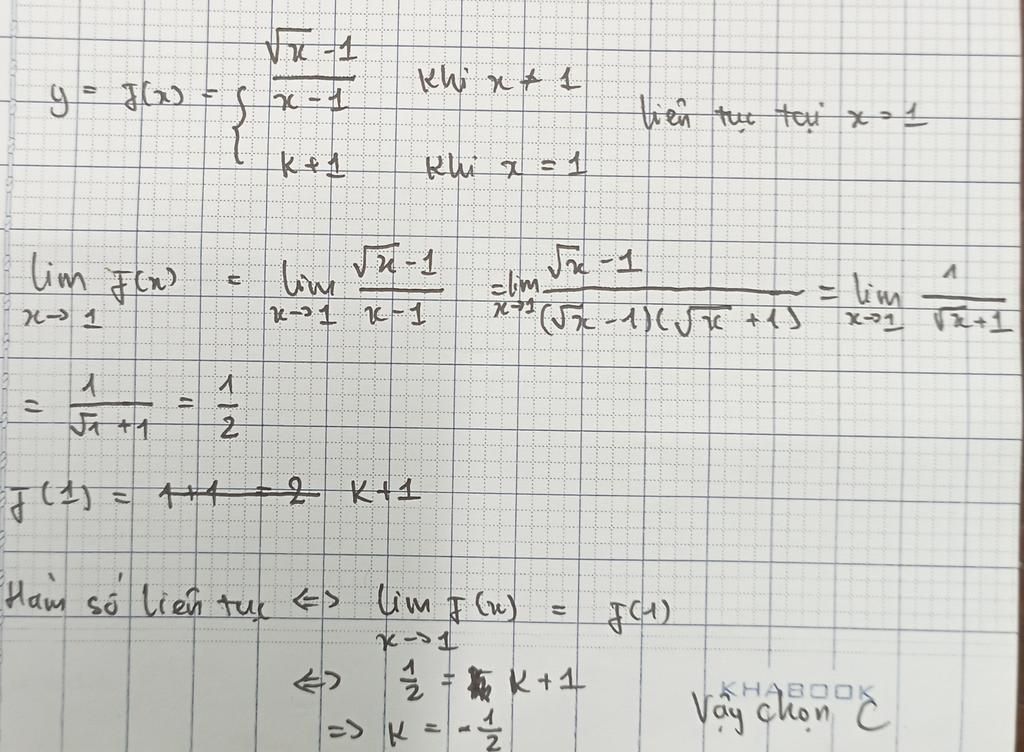 y = f(x) = { (√x - 1)/(x - 1) khi x ≠ 1
k + 1 khi x = 1
liên tục tại x = 1
lim x→1 f(x) = lim x→1 (√x - 1)/(x - 1) = lim x→1 (√x - 1)/((√x - 1)(√x + 1)) = lim x→1 1/(√x + 1)
= 1/(√1 + 1) = 1/2
f(1) = 1+1 = 2 k+1
Hàm số liên tục <=> lim x→1 f(x) = f(1)
<=> 1/2 = k + 1
=> k = -1/2
KHABOOK
Vậy chọn C